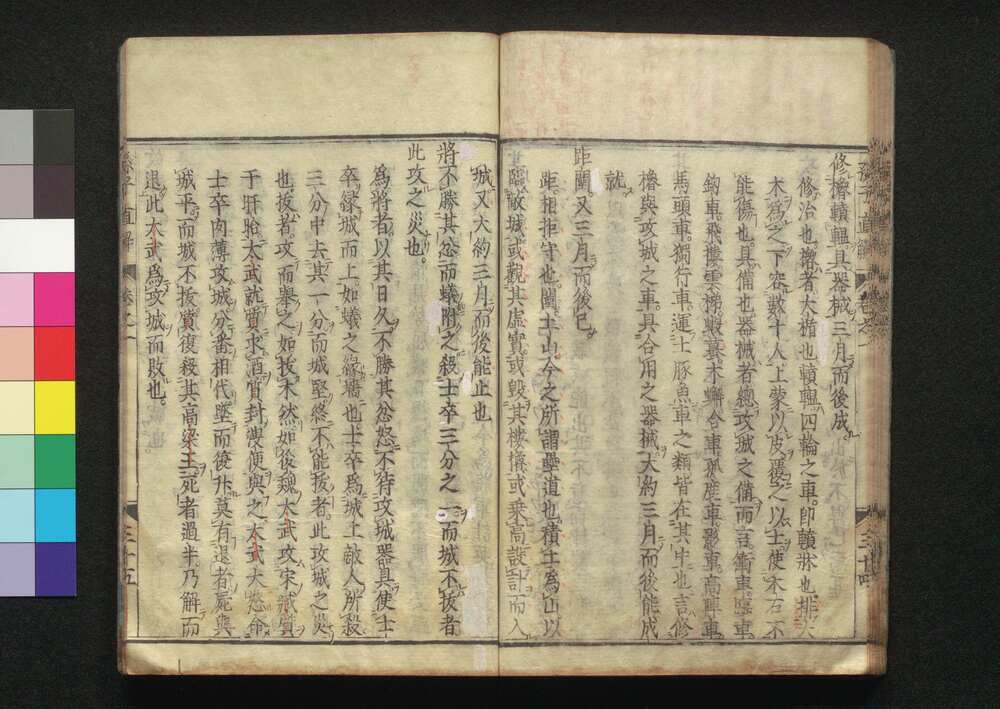 修櫓轒轀具器械三月而後成
修治也櫓者大楯也轒轀四輪之車即轒牀也排大
木為之下容數十人上蒙以皮覆之以土使木石不
能傷也具備也器械者總攻城之備而言衝車臨車
鈎車飛樓雲梯蝦蟇木幔合車狐鹿車影車高陣車
馬頭車獨行車運土豚魚車之類皆在其中也言修
櫓與攻城之車具合用之器械大約三月而後能成
就
距闉又三月而後已
距相拒守也闉土山今之所謂壘道也積土為山以
臨敵城或觀其虛實或毀其樓櫓或乗高設計而入
城又大約三月而後能止也
將不勝其忿而蟻附之殺士卒三分之一而城不抜者
此攻之災也
為將者以其日久不勝其忿怒不待攻城器具使士
卒緣城而上如蟻之緣墻也士卒為城上敵人所殺
三分中去其一分而城堅終不能抜者此攻城之災
也抜者攻而舉之如抜木然如後魏太武攻宋臧質
于盱眙太武就質求酒質封溲便與之太武大怒命
士卒肉薄攻城分番相代墜而復升莫有退者屍與
城平而城不抜質復殺其高梁王死者過半乃解而
退此太武為攻城而敗也
孫子直解 卷之一 三十四
孫子直解 卷之一 三十五